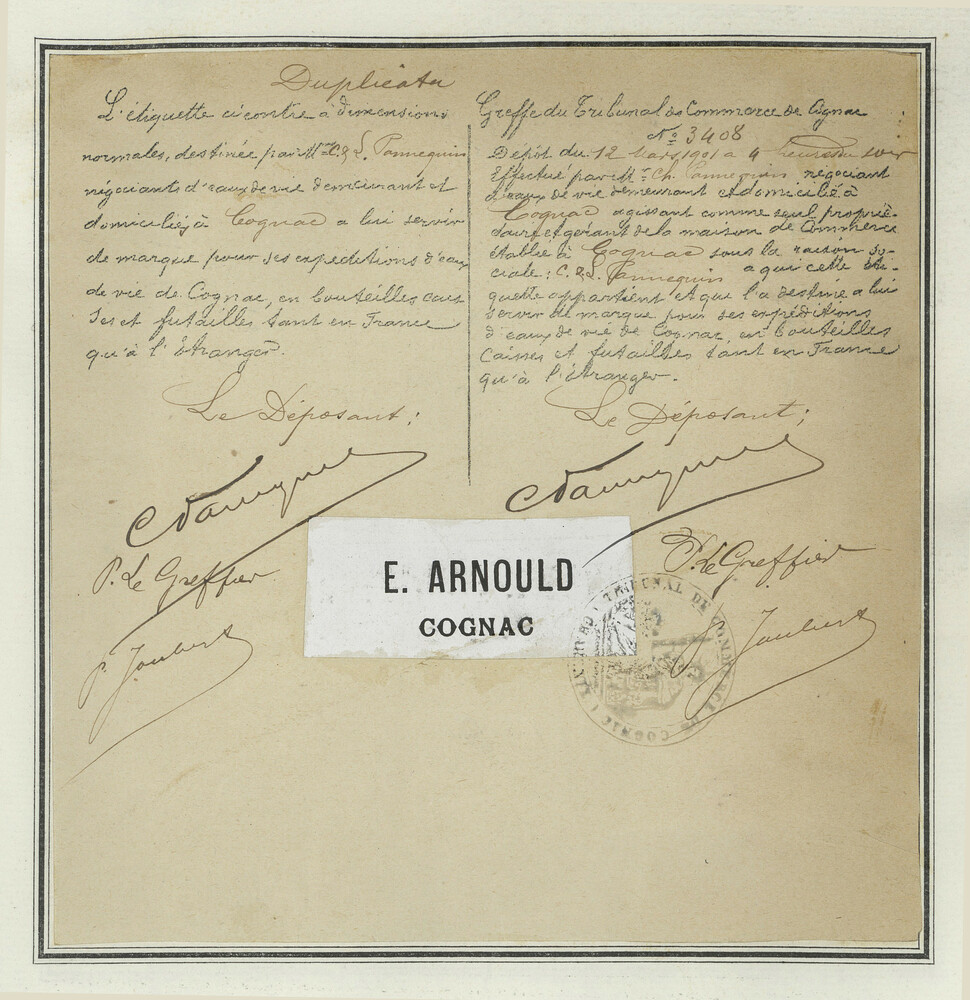 Duplicata
L'étiquette ci contre à dimensions
normales, destinée par Mrs C. & L. Tannequin
négociants d'eaux de vie demeurant et
domiciliés à Cognac a lui servir
de marque pour ses expeditions d'eaux
de vie de Cognac, en bouteilles cais
ses et futailles tant en France
qu'à l'étranger.
Le Déposant:
P. Le Greffier
P. Joubert
Greffe du Tribunal de Commerce de Cognac
No 3408
Dépôt du 12 Mars 1901 a 4 heures du soir
Effectué par Mr Ch. Tannequin négociant
d'eaux de vie demeurant et domicilié à
Cognac agissant comme seul proprié-
taire et gérant de la maison de Commerce
établie à Cognac sous la raison so-
ciale: C. & L. Tannequin a qui cette éti-
quette appartient et que l'a destine a lui
servir de marque pour ses expéditions
d'eaux de vie de Cognac en bouteilles
Caisses et futailles tant en France
qu'à l'étranger.
Le Déposant;
P. Le Greffier
P. Joubert
E. ARNOULD
COGNAC
TRIBUNAL DE COMMERCE DE COGNAC